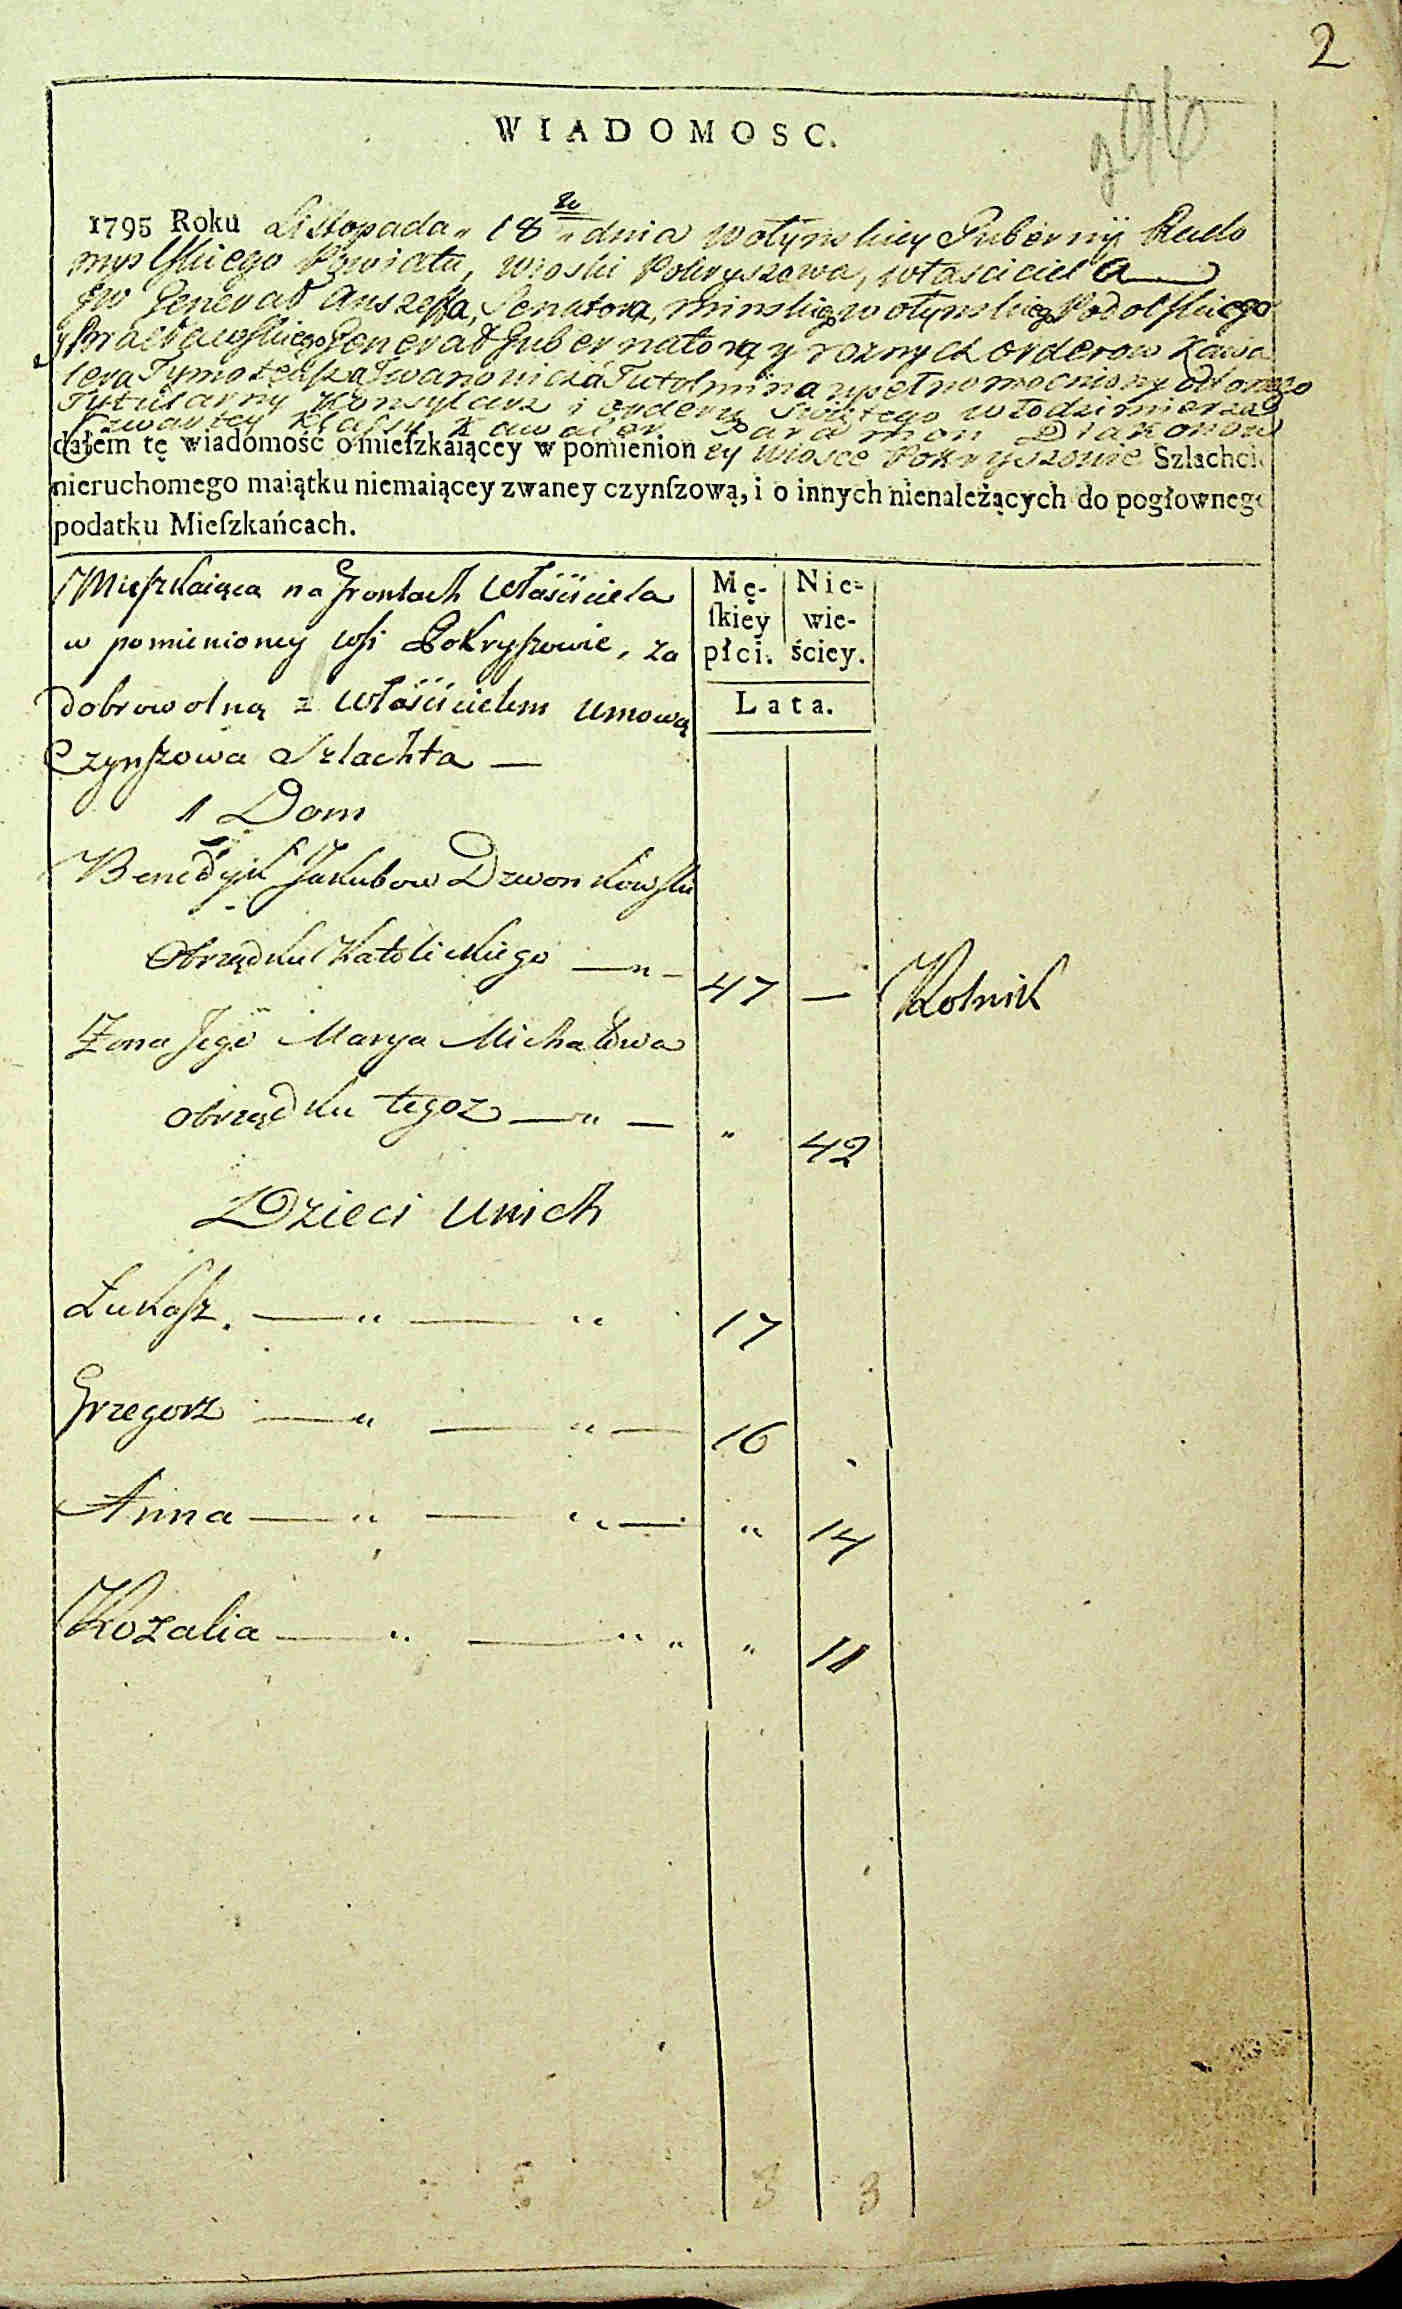 2
WIADOMOSC.
1795 Roku Listopada 18 go dnia Wołynskiey Gubernij Rado
myslskiego Powiatu, wioski Pokryszowa, właściciela
JW General Anszeffa, Senatora, Minskiego Wołynskiego Podolskiego
y Bracławskiego General Gubernatora y roznych orderow Kawa
lera Tymoteusza Iwanowicza Tutolmina upełnomocniony od onego
Tytularny Konsylarz i orderu Swiętego Włodzimierza
Czwartey Klassy Kawaler Paramon Diakonow
dałem tę wiadomość o mieſzkaiącey w pomienioney wiosce Pokryszowie Szlachcie
nieruchomego maiątku niemaiącey zwaney czynſzową, i o innych nienależących do pogłownego
podatku Mieſzkańcach.
Mięſzkaiąca na Gruntach Właściciela
w pomienioney Wsi Pokryſzowie, za
dobrowolną z Właścicielem Umową
Czynſzowa Szlachta —
Mę- Nie-
ſkiey wie-
płci. ściey.
Lata.
1 Dom
Benedykt Jakubow Dzwonkowski
Obrządku Katolickiego — " — 47 — Rolnik
Żona Jego Marya Michałowa
obrządku tegoż — " — " 42
Dzieci unich
Łukaſz. — " — " 17
Grzegorz — " — " — 16
Anna — " — " — " 14
Rozalia — " — " " " 11
3 3